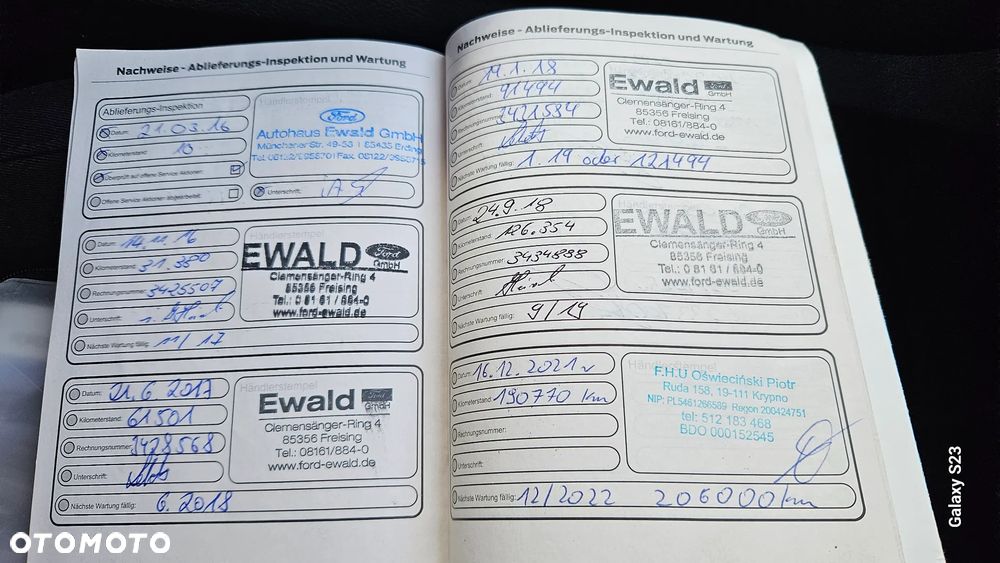 Nachweise - Ablieferungs-Inspektion und Wartung
Ablieferungs-Inspektion
Händlerstempel
Datum: 21.03.16
Kilometerstand: 10
Überprüft auf offene Service Aktionen:
Offene Service Aktionen abgearbeitet:
Unterschrift:
Ford
Autohaus Ewald GmbH
Münchener Str. 49-53 | 85435 Erding
Datum: 14.11.16
Kilometerstand: 31.380
Rechnungsnummer: 3425507
Unterschrift:
Nächste Wartung fällig: 11/17
Händlerstempel
EWALD Ford GmbH
Clemensänger-Ring 4
85356 Freising
Tel.: 0 81 61 / 884-0
www.ford-ewald.de
Datum: 21.6.2017
Kilometerstand: 61501
Rechnungsnummer: 3428568
Unterschrift:
Nächste Wartung fällig: 6.2018
Händlerstempel
Ewald Ford GmbH
Clemensänger-Ring 4
85356 Freising
Tel.: 08161/884-0
www.ford-ewald.de
Nachweise - Ablieferungs-Inspektion und Wartung
Datum: 11.1.18
Kilometerstand: 91494
Rechnungsnummer: 3431584
Unterschrift:
Nächste Wartung fällig: 1.19 oder 121494
Ewald Ford GmbH
Clemensänger-Ring 4
85356 Freising
Tel.: 08161/884-0
www.ford-ewald.de
Datum: 24.9.18
Kilometerstand: 126.354
Rechnungsnummer: 3434898
Unterschrift:
Nächste Wartung fällig: 9/19
Händlerstempel
EWALD Ford GmbH
Clemensänger-Ring 4
85356 Freising
Tel.: 0 81 61 / 884-0
www.ford-ewald.de
Datum: 16.12.2021r
Kilometerstand: 190770 km
Rechnungsnummer:
Unterschrift:
Nächste Wartung fällig: 12/2022 206000 km
Händlerstempel
F.H.U Oświeciński Piotr
Ruda 158, 19-111 Krypno
NIP: PL5461266589 Regon 200424751
tel: 512 183 468
BDO 000152545
Galaxy S23
OTOMOTO